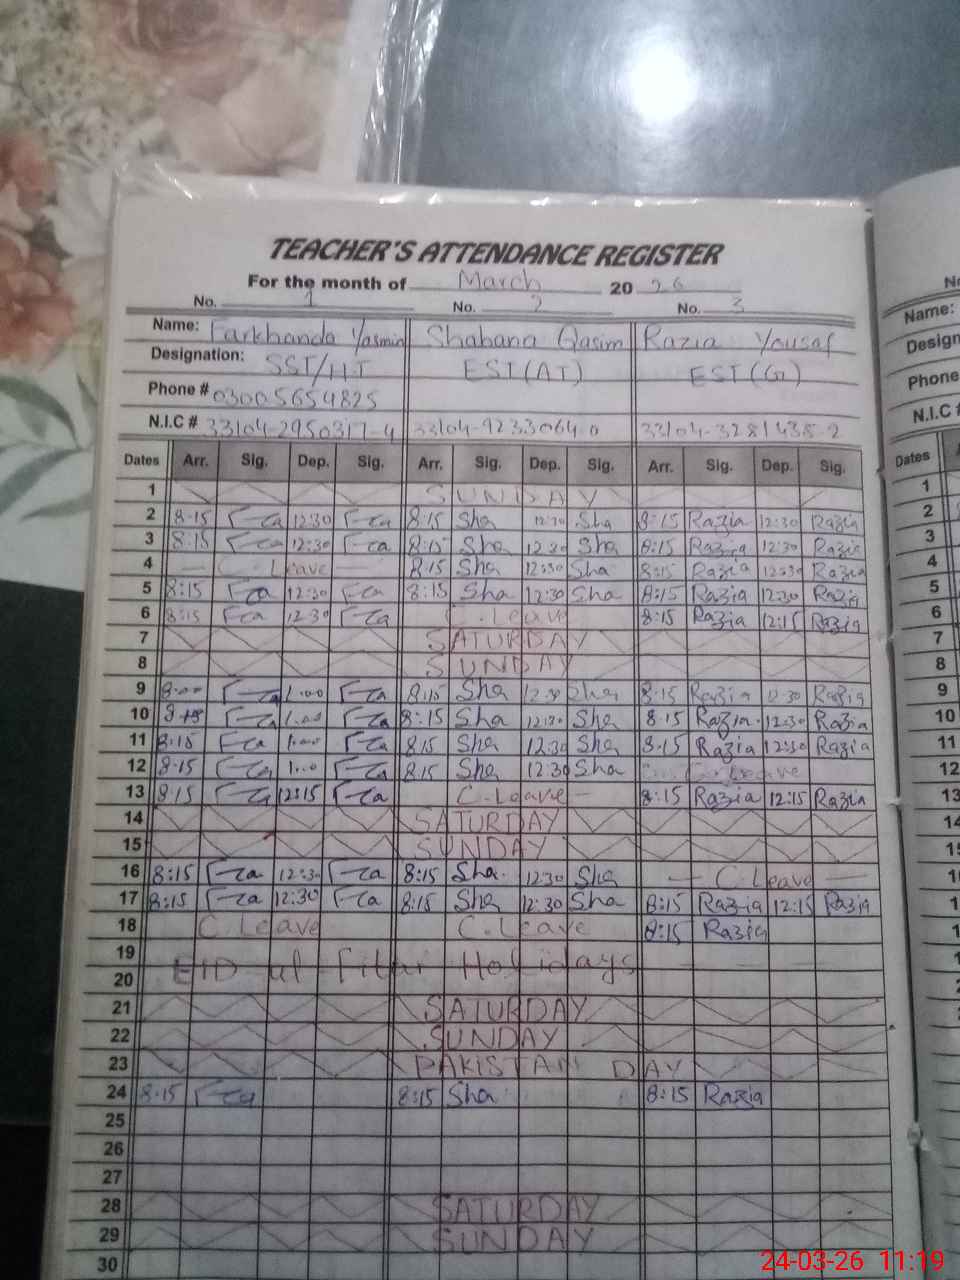 TEACHER'S ATTENDANCE REGISTER
For the month of March 20 26
No. 1 No. 2 No. 3
Name: Farkhanda Yasmin Shabana Qasim Razia Yousaf
Designation: SST/HT EST(AT) EST(G)
Phone # 03005654825
N.I.C # 33104-2950317-4 33104-9233064-0 33104-3281438-2
Dates Arr. Sig. Dep. Sig. Arr. Sig. Dep. Sig. Arr. Sig. Dep. Sig.
1 SUNDAY
2 8-15 Fca 12:30 Fca 8:15 Sha 12:30 Sha 8:15 Razia 12:30 Razia
3 8:15 Fca 12:30 Fca 8:15 Sha 12:30 Sha 8:15 Razia 12:30 Razia
4 — C. Leave — 8:15 Sha 12:30 Sha 8:15 Razia 12:30 Razia
5 8:15 Fca 12:30 Fca 8:15 Sha 12:30 Sha 8:15 Razia 12:30 Razia
6 8:15 Fca 12:30 Fca C. Leave 8:15 Razia 12:15 Razia
7 SATURDAY
8 SUNDAY
9 8:00 Fca 1:00 Fca 8:15 Sha 12:30 Sha 8:15 Razia 12:30 Razia
10 Fca 1:00 Fca 8:15 Sha 12:30 Sha 8:15 Razia 12:30 Razia
11 8:15 Fca 1:00 Fca 8:15 Sha 12:30 Sha 8:15 Razia 12:30 Razia
12 8:15 Fca 1:00 Fca 8:15 Sha 12:30 Sha C. Leave
13 8:15 Fca 12:15 Fca C. Leave — 8:15 Razia 12:15 Razia
14 SATURDAY
15 SUNDAY
16 8:15 Fca 12:30 Fca 8:15 Sha 12:30 Sha — C. Leave —
17 8:15 Fca 12:30 Fca 8:15 Sha 12:30 Sha 8:15 Razia 12:15 Razia
18 C. Leave C. Leave 8:15 Razia
19 EID ul Fitar Holidays
20
21 SATURDAY
22 SUNDAY
23 PAKISTAN DAY
24 8:15 Fca 8:15 Sha 8:15 Razia
25
26
27
28 SATURDAY
29 SUNDAY
30
Name:
Phone #
N.I.C #
Dates
1
2
3
4
5
6
7
8
9
10
11
12
13
24-03-26 11:19